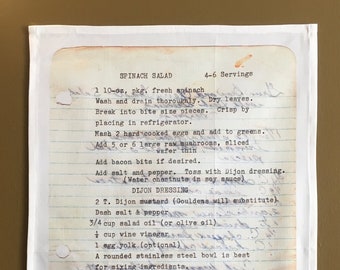 SPINACH SALAD 4-6 Servings
1 10-oz. pkg. fresh spinach
Wash and drain thoroughly. Dry leaves.
Break into bite size pieces. Crisp by
placing in refrigerator.
Mash 2 hard cooked eggs and add to greens.
Add 5 or 6 large raw mushrooms, sliced
wafer thin
Add bacon bits if desired.
Add salt and pepper. Toss with Dijon dressing.
(Water chestnuts in soy sauce)
DIJON DRESSING
2 T. Dijon mustard (Gouldens will substitute)
Dash salt & pepper
3/4 cup salad oil (or olive oil)
¼ cup wine vinegar
1 egg yolk (optional)
A rounded stainless steel bowl is best
for mixing ingredients.